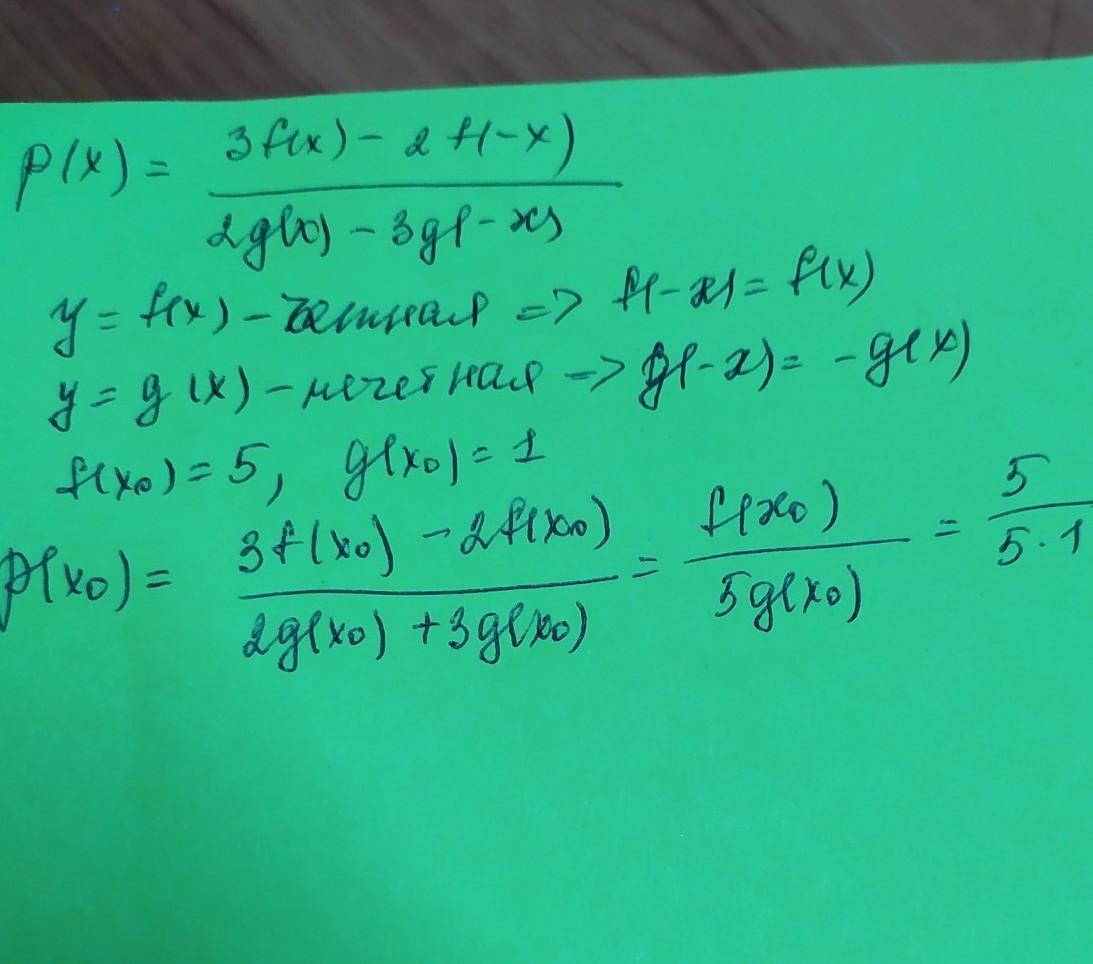 p(x) = (3f(x) - 2f(-x)) / (2g(x) - 3g(-x))
y = f(x) - четная => f(-x) = f(x)
y = g(x) - нечетная => g(-x) = -g(x)
f(x₀) = 5, g(x₀) = 1
p(x₀) = (3f(x₀) - 2f(x₀)) / (2g(x₀) + 3g(x₀)) = f(x₀) / 5g(x₀) = 5 / 5·1